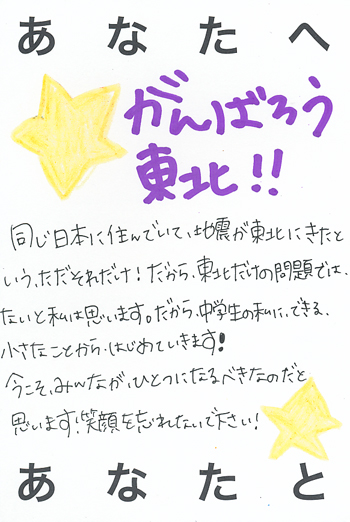 あなたへ
がんばろう
東北!!
同じ日本に住んでいて、地震が東北にきたと
いう、ただそれだけ!だから、東北だけの問題では、
ないと私は思います。だから、中学生の私に、できる、
小さなことから、はじめていきます!
今こそ、みんなが、ひとつになるべきなのだと
思います!笑顔を忘れないで下さい!
あなたと